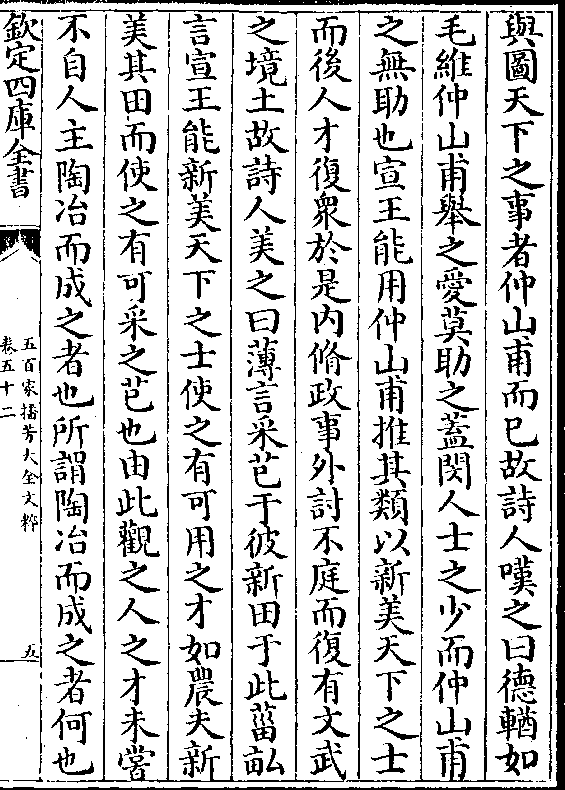 與圖天下之事者仲山甫而已故詩人嘆之曰德輶如
毛維仲山甫舉之愛莫助之蓋閔人士之少而仲山甫
之無助也宣王能用仲山甫推其類以新美天下之士
而後人才復衆於是内脩政事外討不庭而復有文武
之境土故詩人美之曰薄言采芑于彼新田于此菑畝
言宣王能新美天下之士使之有可用之才如農夫新
美其田而使之有可采之芑也由此觀之人之才未嘗
不自人主陶冶而成之者也所謂陶冶而成之者何也
欽定四庫全書
五百家播芳大全文粹
卷五十二
五